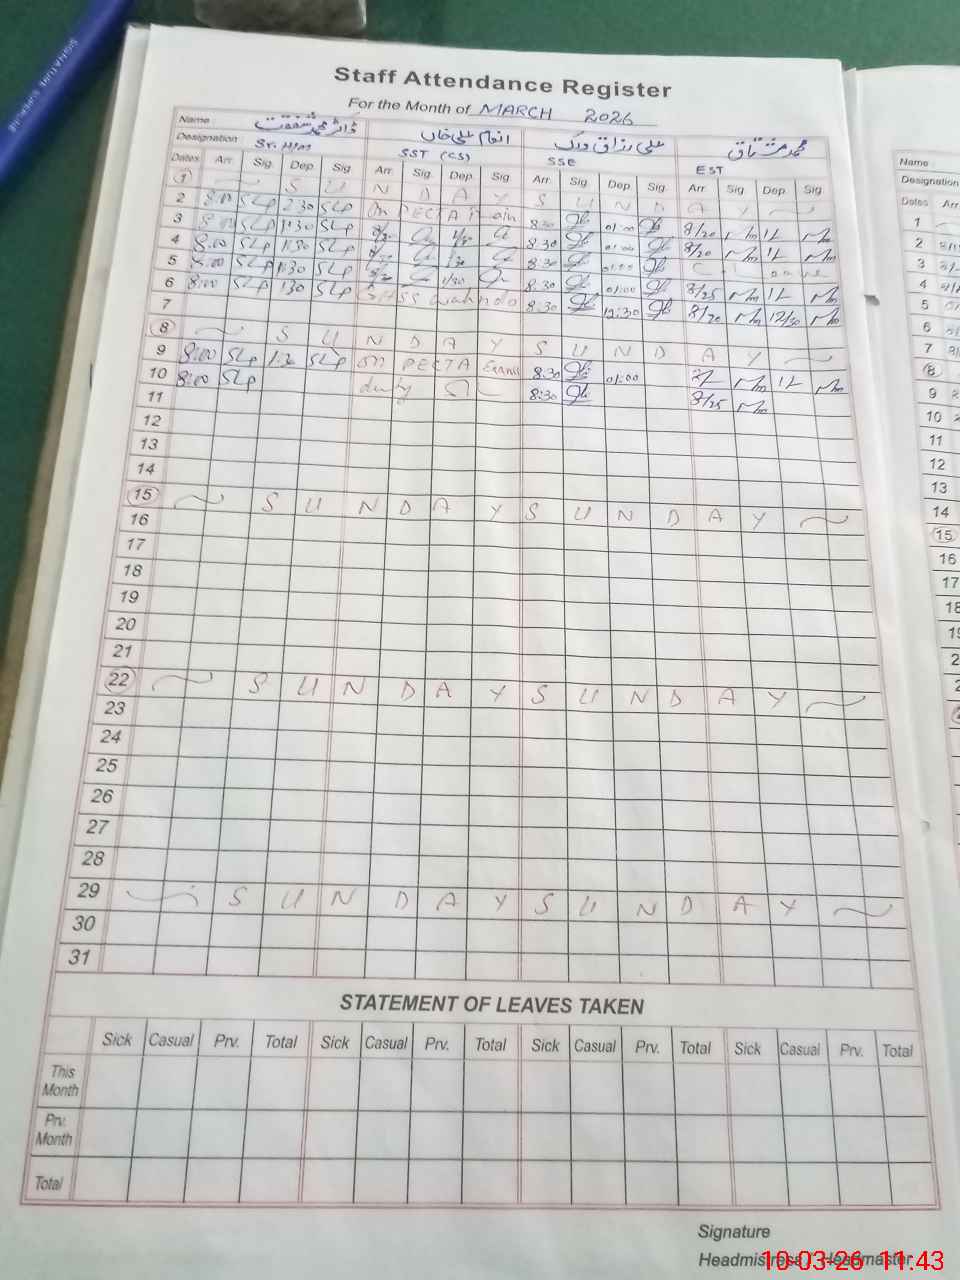 SIGNATURE SUPERLITE
Staff Attendance Register
For the Month of MARCH 2026
Name : ڈاکٹر محمد شفقت انعام علی خاں علی رزاق ورک محمد مشتاق
Designation Sr. H/M SST (CS) SSE EST
Dates Arr. Sig. Dep Sig Arr. Sig. Dep. Sig. Arr. Sig. Dep. Sig. Arr. Sig. Dep. Sig.
1 S U N D A Y S U N D A Y
2 8:00 SLP 2:30 SLP On PECTA 8:30 01:00 8/20
3 8:00 SLP 1:30 SLP 8:30 01:00 8/20
4 8:00 SLP 1:30 SLP 1:30 8:30 01:00 C/Leave
5 8:00 SLP 1:30 SLP 1:30 8:30 01:00 8/25
6 8:00 SLP 1:30 SLP GHSS 8:30 12:30 8/20 12/30
7
8 S U N D A Y S U N D A Y
9 8:00 SLP 1:30 SLP on PECTA Exams 8:30 01:00
10 8:00 SLP duty 8:30 8/25
11
12
13
14
15 S U N D A Y S U N D A Y
16
17
18
19
20
21
22 S U N D A Y S U N D A Y
23
24
25
26
27
28
29 S U N D A Y S U N D A Y
30
31
STATEMENT OF LEAVES TAKEN
Sick Casual Prv. Total Sick Casual Prv. Total Sick Casual Prv. Total Sick Casual Prv. Total
This Month
Prv. Month
Total
Signature
Headmistress / Headmaster
10-03-26 11:43
Name :
Designation
Dates Arr
1
2
3
4
5
6
7
8
9
10
11
12
13
14
15
16
17